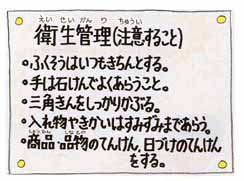 えいせいかんり ちゅうい
衛生管理(注意すること)
•ふくそうはいつもきちんとする。
•手は石けんでよくあらうこと。
•三角きんをしっかりかぶる。
•入れ物やきかいはすみずみまであらう。
しょうひん しなもの
•商品 品物のてんけん、日づけのてんけん
をする。